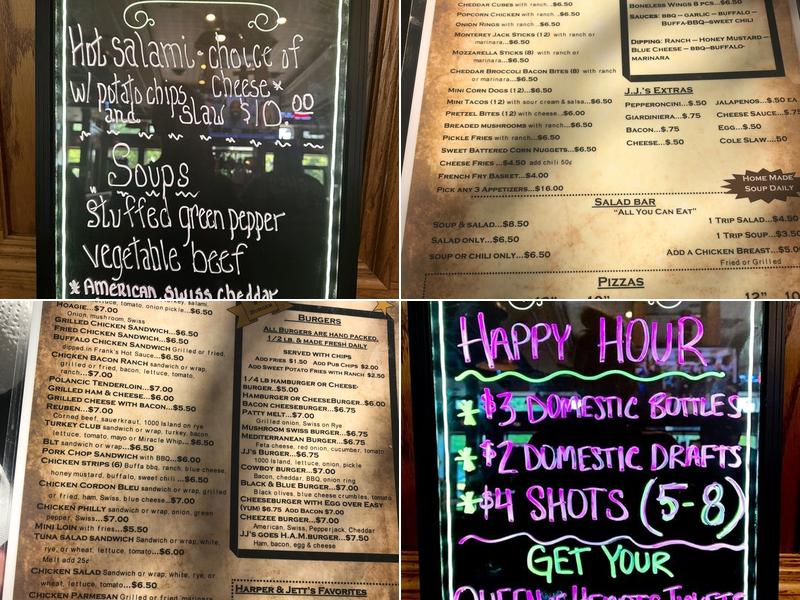 Hot salami - choice of
w/ potato chips cheese*
and slaw $10.00
Soups
stuffed green pepper
vegetable beef
*American, swiss, cheddar
Cheddar Cubes with ranch...$6.50
Popcorn Chicken with ranch...$6.50
Onion Rings with ranch...$6.50
Monterey Jack Sticks (12) with ranch or
marinara...$6.50
Mozzarella Sticks (8) with ranch or
marinara...$6.50
Cheddar Broccoli Bacon Bites (8) with ranch
or marinara...$6.50
Mini Corn Dogs (12)...$6.50
Mini Tacos (12) with sour cream & salsa...$6.50
Pretzel Bites (12) with cheese...$6.00
Breaded Mushrooms with ranch...$6.50
Pickle Fries with ranch...$6.50
Sweet Battered Corn Nuggets...$6.50
Cheese Fries ...$4.50 add chili 50¢
French Fry Basket...$4.00
Pick any 3 Appetizers...$16.00
Boneless Wings 8 pcs...$6.50
Sauces: BBQ – Garlic – Buffalo –
Buffa-BBQ–Sweet Chili
Dipping: Ranch – Honey Mustard –
Blue Cheese – BBQ–Buffalo-
Marinara
J.J.'s Extras
Pepperoncini...$.50 Jalapenos...$.50 ea
Giardiniera...$.75 Cheese Sauce...$.75
Bacon...$.75 Egg...$.50
Cheese...$.50 Cole Slaw...50
Home Made
Soup Daily
Salad Bar
"All You Can Eat"
Soup & Salad...$8.50 1 Trip Salad...$4.50
Salad Only...$6.50 1 Trip Soup...$3.50
Soup or Chili Only...$6.50 Add a Chicken Breast...$5.00
Fried or Grilled
Pizzas
12" 10
lettuce, tomato, onion pickle...$6.50
Hoagie...$7.00
Onion, mushroom, Swiss
Grilled Chicken Sandwich...$6.50
Fried Chicken Sandwich...$6.50
Buffalo Chicken Sandwich Grilled or fried,
dipped in Frank's Hot Sauce...$6.50
Chicken Bacon Ranch sandwich or wrap,
grilled or fried, bacon, lettuce, tomato,
ranch...$7.00
Polancic Tenderloin...$7.00
Grilled Ham & Cheese...$6.00
Grilled Cheese with Bacon...$5.50
Reuben...$7.00
Corned beef, sauerkraut, 1000 Island on rye
Turkey Club sandwich or wrap, turkey, bacon,
lettuce, tomato, mayo or Miracle Whip...$6.50
BLT sandwich or wrap...$6.50
Pork Chop Sandwich with BBQ...$6.00
Chicken Strips (6) Buffa bbq, ranch, blue cheese,
honey mustard, buffalo, sweet chili ...$6.50
Chicken Cordon Bleu sandwich or wrap, grilled
or fried, ham, Swiss, blue cheese...$7.00
Chicken Philly sandwich or wrap, onion, green
pepper, Swiss...$7.00
Mini Loin with fries...$5.50
Tuna Salad Sandwich Sandwich or wrap, white,
rye, or wheat, lettuce, tomato...$6.00
Melt add 25¢
Chicken Salad Sandwich or wrap, white, rye, or
wheat, lettuce, tomato...$6.50
Chicken Parmesan Grilled or fried, marinara
Burgers
All Burgers are hand packed,
1/2 lb. & made fresh daily
Served with chips
Add fries $1.50 Add Pub Chips $2.00
Add Sweet Potato Fries with Ranch $2.50
1/4 lb Hamburger or Cheese-
burger...$5.00
Hamburger or Cheeseburger...$6.00
Bacon Cheeseburger...$6.75
Patty Melt...$7.00
Grilled onion, Swiss on Rye
Mushroom Swiss Burger...$6.75
Mediterranean Burger...$6.75
Feta cheese, red onion, cucumber, tomato
JJ's Burger...$6.75
1000 Island, lettuce, onion, pickle
Cowboy Burger...$7.00
Bacon, cheddar, BBQ, onion ring
Black & Blue Burger...$7.00
Black olives, blue cheese crumbles, tomato
Cheeseburger with Egg over Easy
(Yum) $6.75 Add Bacon $7.00
Cheezee Burger...$7.00
American, Swiss, Pepperjack, Cheddar
JJ's Goes H.A.M. Burger...$7.50
Ham, bacon, egg & cheese
Harper & Jett's Favorites
Happy Hour
* $3 Domestic Bottles
* $2 Domestic Drafts
* $4 Shots (5-8)
Get Your
Queen of Hearts Tickets